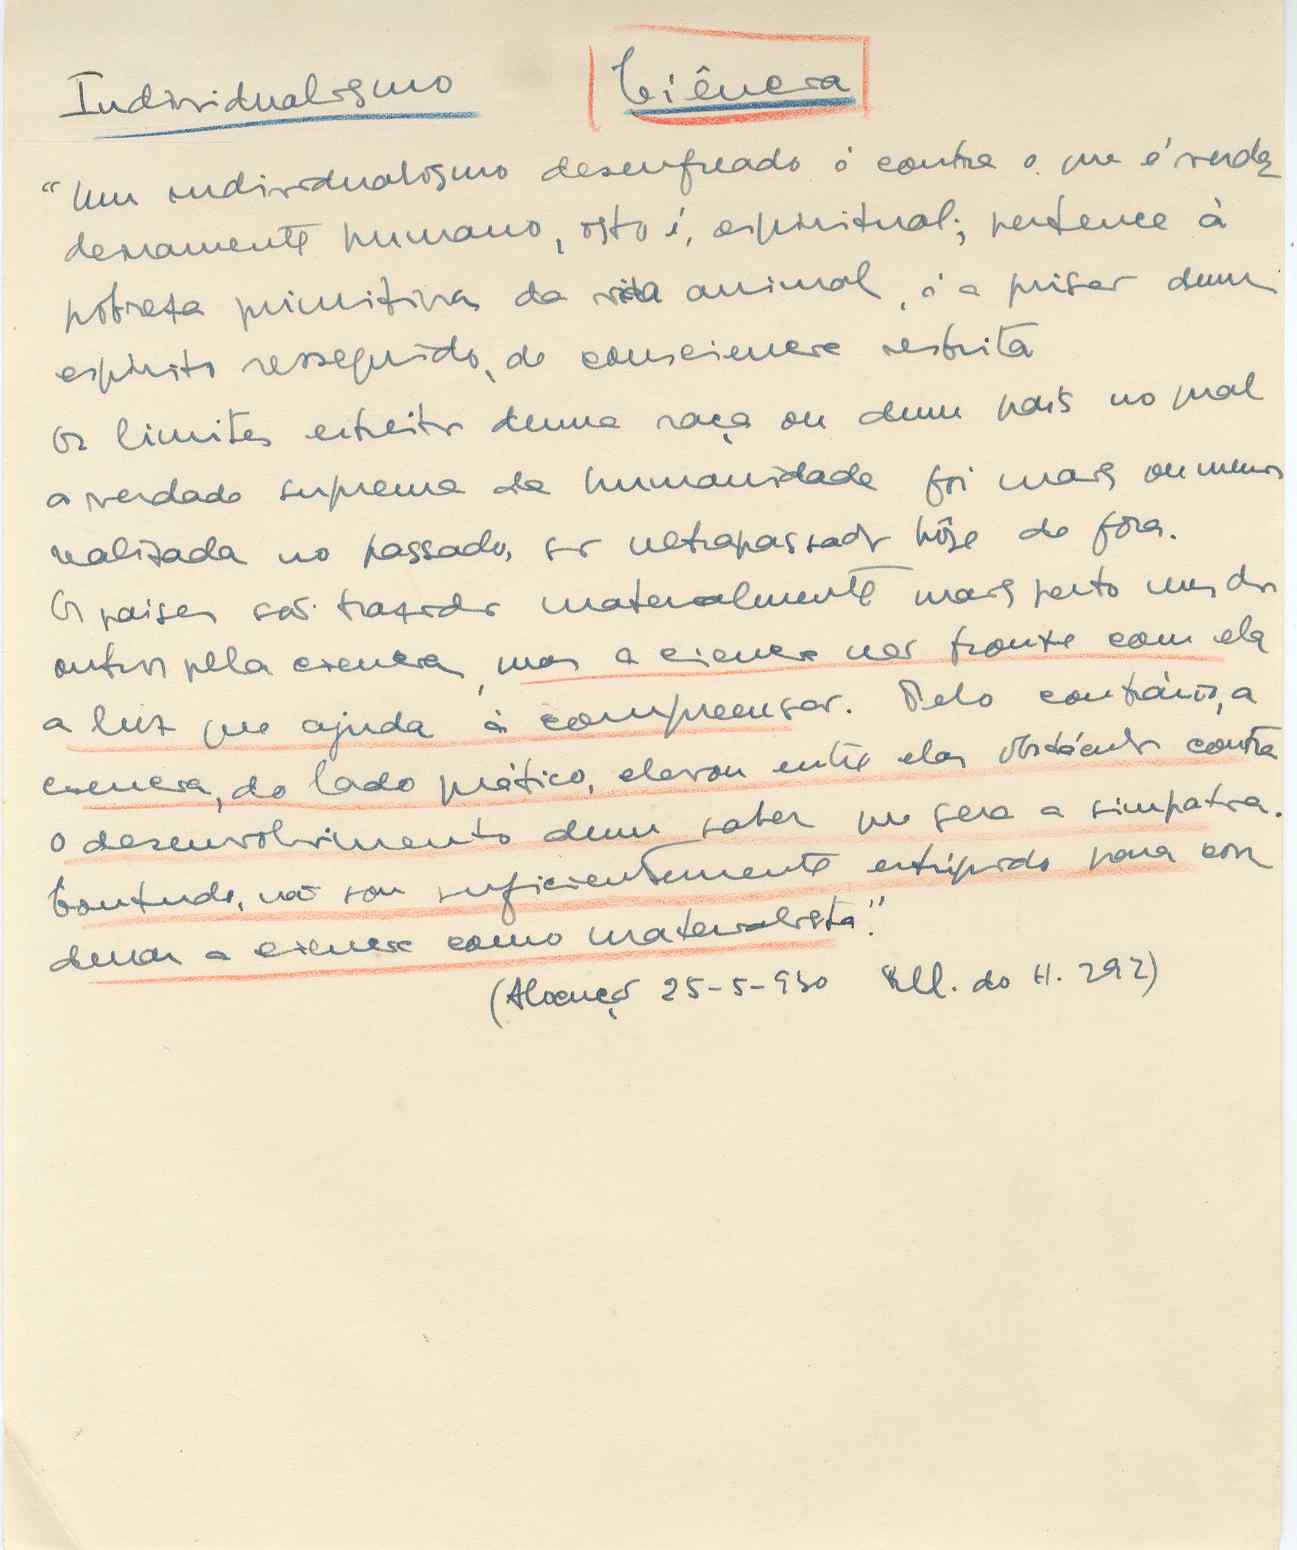 Individualismo Ciência
"Um individualismo desenfreado é contra o que é verda
deiramente humano, isto é, espiritual; pertence à
pobreza primitiva da vida animal, é a prisão dum
espírito ressequido, de consciencia restrita
Os limites estreitos duma raça ou dum país no qual
a verdade suprema da humanidade foi mais ou menos
realizada no passado, são ultrapassados hôje de fóra.
Os países são trazidos materialmente mais perto uns dos
outros pela ciencia, mas a ciencia não trouxe com ela
a luz que ajuda à compreensão. Pelo contrário, a
ciencia, do lado prático, elevou entre elas obstáculos contra
o desenvolvimento dum saber que gera a simpatia.
Contudo, não sou suficientemente estúpido para con
denar a ciencia como materialista."
(Alocução 25-5-930 Rel. do H. 292)